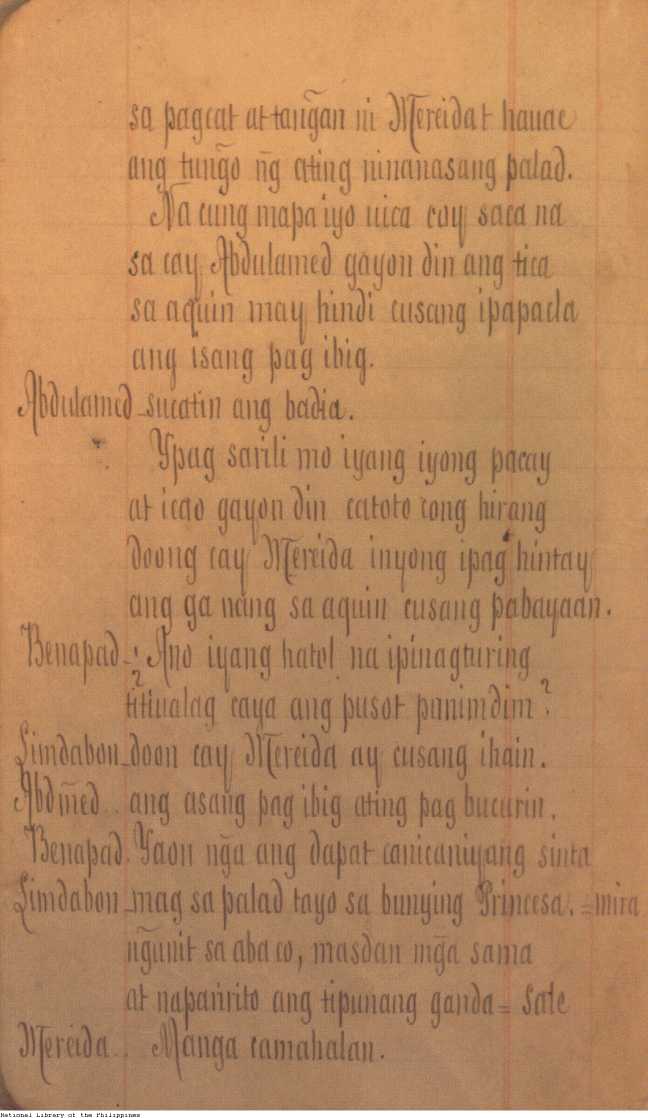 sa pagcat at tañgan ni Mereidat hauac
ang tuñgo n̄g ating ninanasang palad.
Na cung mapa iyo uica coy saca na
sa cay Abdulamed gayon din ang tica
sa aquin may hindi cusang ipapacla
ang isang pag ibig.
Abdulamed - sucatin ang badia.
Ypag sarili mo iyang iyong pacay
at icao gayon din catoto cong hirang
doong cay Mereida inyong ipag hintay
ang ga nang sa aquin cusang pabayaan.
Benapad - ¿Ano iyang hatol na ipinagturing
titiualag caya ang pusot panimdim?
Limdabon - doon cay Mereida ay cusang ihain.
Abdm̄ed.. ang asang pag ibig ating pag bucurin.
Benapad. Yaon n̄ga ang dapat canicaniyang sinta
Limdabon - mag sa palad tayo sa bunying Princesa. = mira
n̄gunit sa aba co, masdan m̄ga sama
at naparirito ang tipunang ganda = Sale
Mereida.. Manga camahalan.
National Library of the Philippines